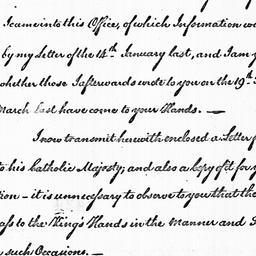 I came into this Office, of which Information wa
by my Letter of the 14th January last, and I am y
whether those I afterwards wrote to you on the 19th
March last have come to your Hands. —
I now transmit herewith enclosed a Letter f
to his Catholic Majesty; and also a Copy of it for y
tion — it is unnecessary to observe to you that the
ass to the King's Hands in the Manner and
such Occasions. —